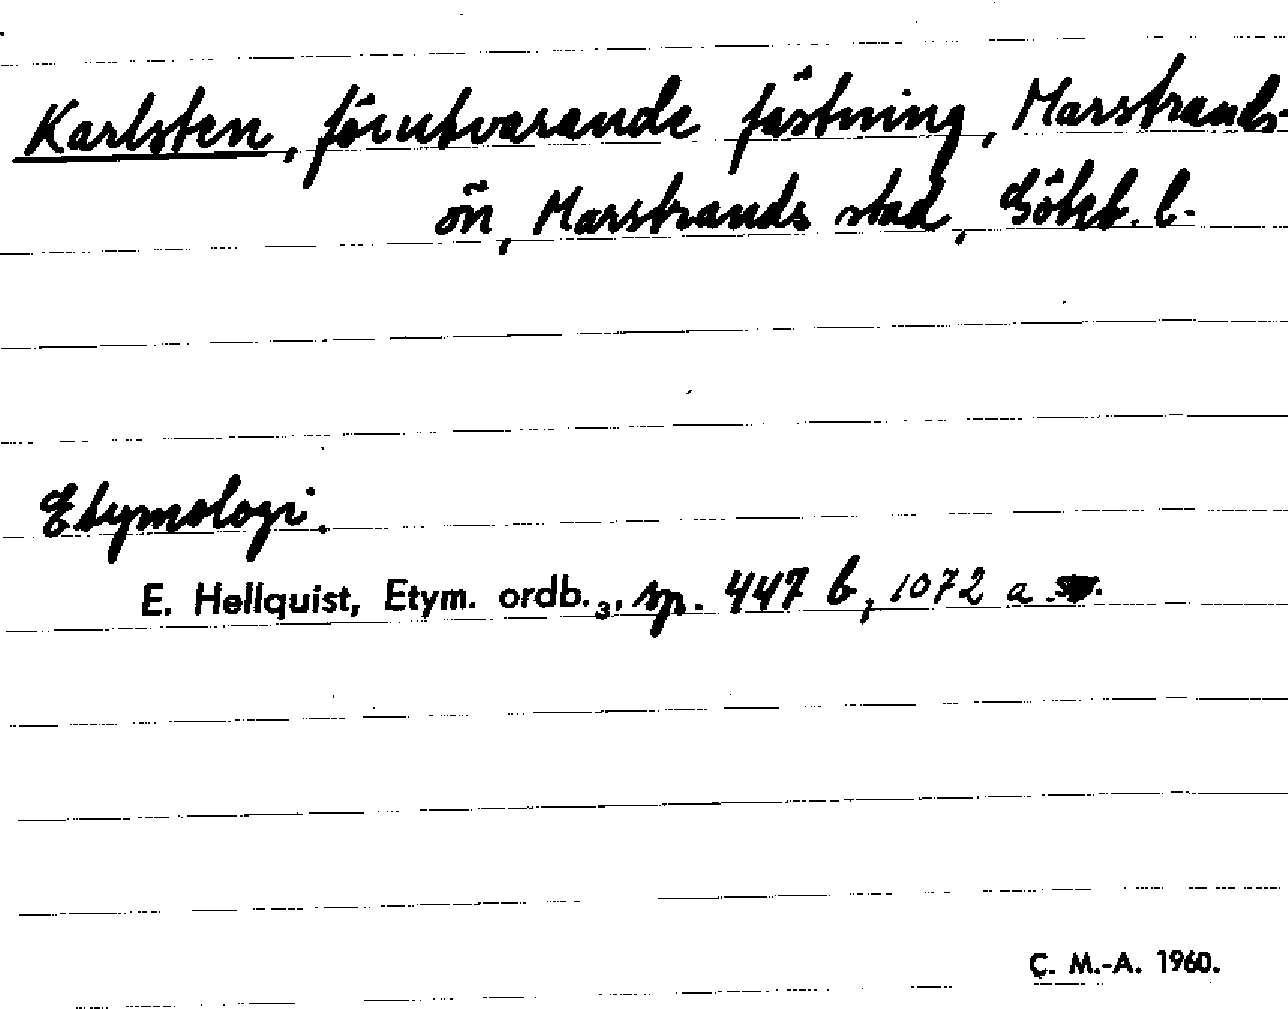 Karlsten, förutvarande fästning, Marstrands-
ön, Marstrands stad, Göteb. l.
Etymologi.
E. Hellquist, Etym. ordb.₃, sp. 447 b, 1072 a
C. M.-A. 1960.